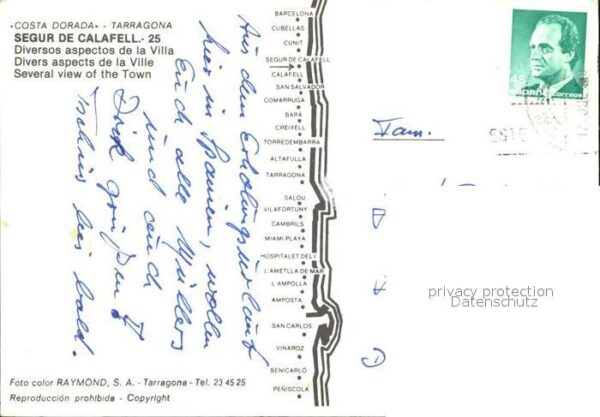 «COSTA DORADA» - TARRAGONA
SEGUR DE CALAFELL.- 25
Diversos aspectos de la Villa
Divers aspects de la Ville
Several view of the Town
Aus dem Erholungsurlaub
hier in Spanien, wollen
Euch alle Müllers
und auch
Dirk grüßen
Tschüs bis bald.
BARCELONA
CUBELLAS
CUNIT
SEGUR DE CALAFELL
CALAFELL
SAN SALVADOR
COMARRUGA
BARA
CREIXELL
TORREDEMBARRA
ALTAFULLA
TARRAGONA
SALOU
VILAFORTUNY
CAMBRILS
MIAMI-PLAYA
HOSPITALET DEL I
L'AMETLLA DE MAR
L'AMPOLLA
AMPOSTA
SAN CARLOS
VINAROZ
BENICARLÓ
PEÑISCOLA
45
España
correos
Fam.
D
A
privacy protection
Datenschutz
Foto color RAYMOND, S. A. - Tarragona - Tel. 23 45 25
Reproducción prohibida - Copyright